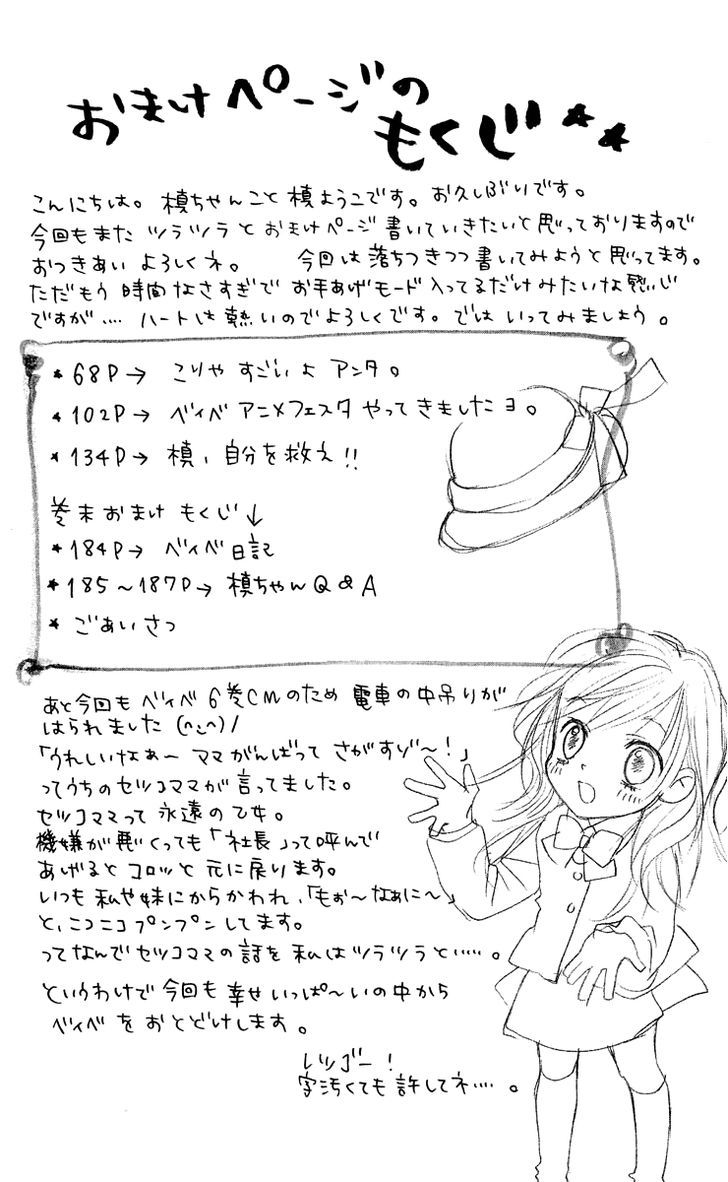 おまけページの
もくじ★★
こんにちは。槙ちゃんこと槙ようこです。お久しぶりです。
今回もまたツラツラとおまけページ書いていきたいと思っておりますので
おつきあいよろしくネ。 今回は落ちつきつつ書いてみようと思ってます。
ただもう時間なさすぎでお手あげモード入ってるだけみたいな感じ
ですが…. ハートは熱いのでよろしくです。ではいってみましょう。
★68P→ こりゃすごいよアンタ。
★102P→ ベイベアニメフェスタやってきましたヨ。
★134P→ 槙、自分を救え!!
巻末おまけもくじ↓
★184P→ ベイベ日記
★185~187P→ 槙ちゃんQ&A
★ごあいさつ
あと今回もベイベ6巻CMのため電車の中吊りが
はられました(^ー^)/
「うれしいなぁ~ママがんばってさがすゾ~!」
ってうちのセツコママが言ってました。
セツコママって永遠の乙女。
機嫌が悪くっても「社長」って呼んで
あげるとコロッと元に戻ります。
いつも私や妹にからかわれ、「もぉ~なぁに~」
と、ニコニコプンプンしてます。
ってなんでセツコママの話を私はツラツラと…‥。
というわけで今回も幸せいっぱ~いの中から
ベイベをおとどけします。
レツゴー!
字汚くても許してネ‥‥。